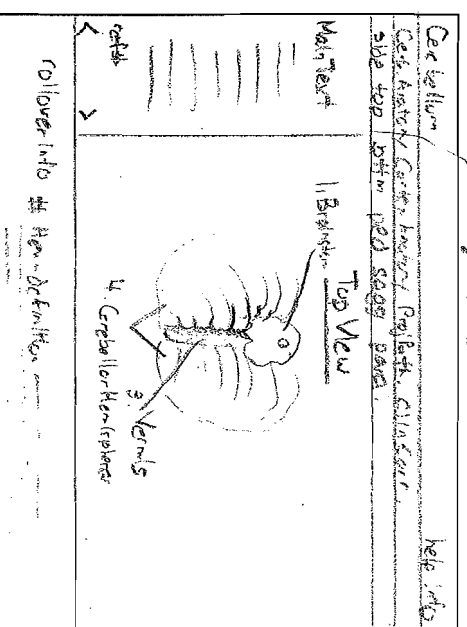 Cerebellum help info
Anatomy Cortex Anatomy Proj Path.
side top bttm ped sagg
Main Text
Top View
1. Brainstem
3. Vermis
4. Cerebellar Hemispheres
rollover info # Item Definition